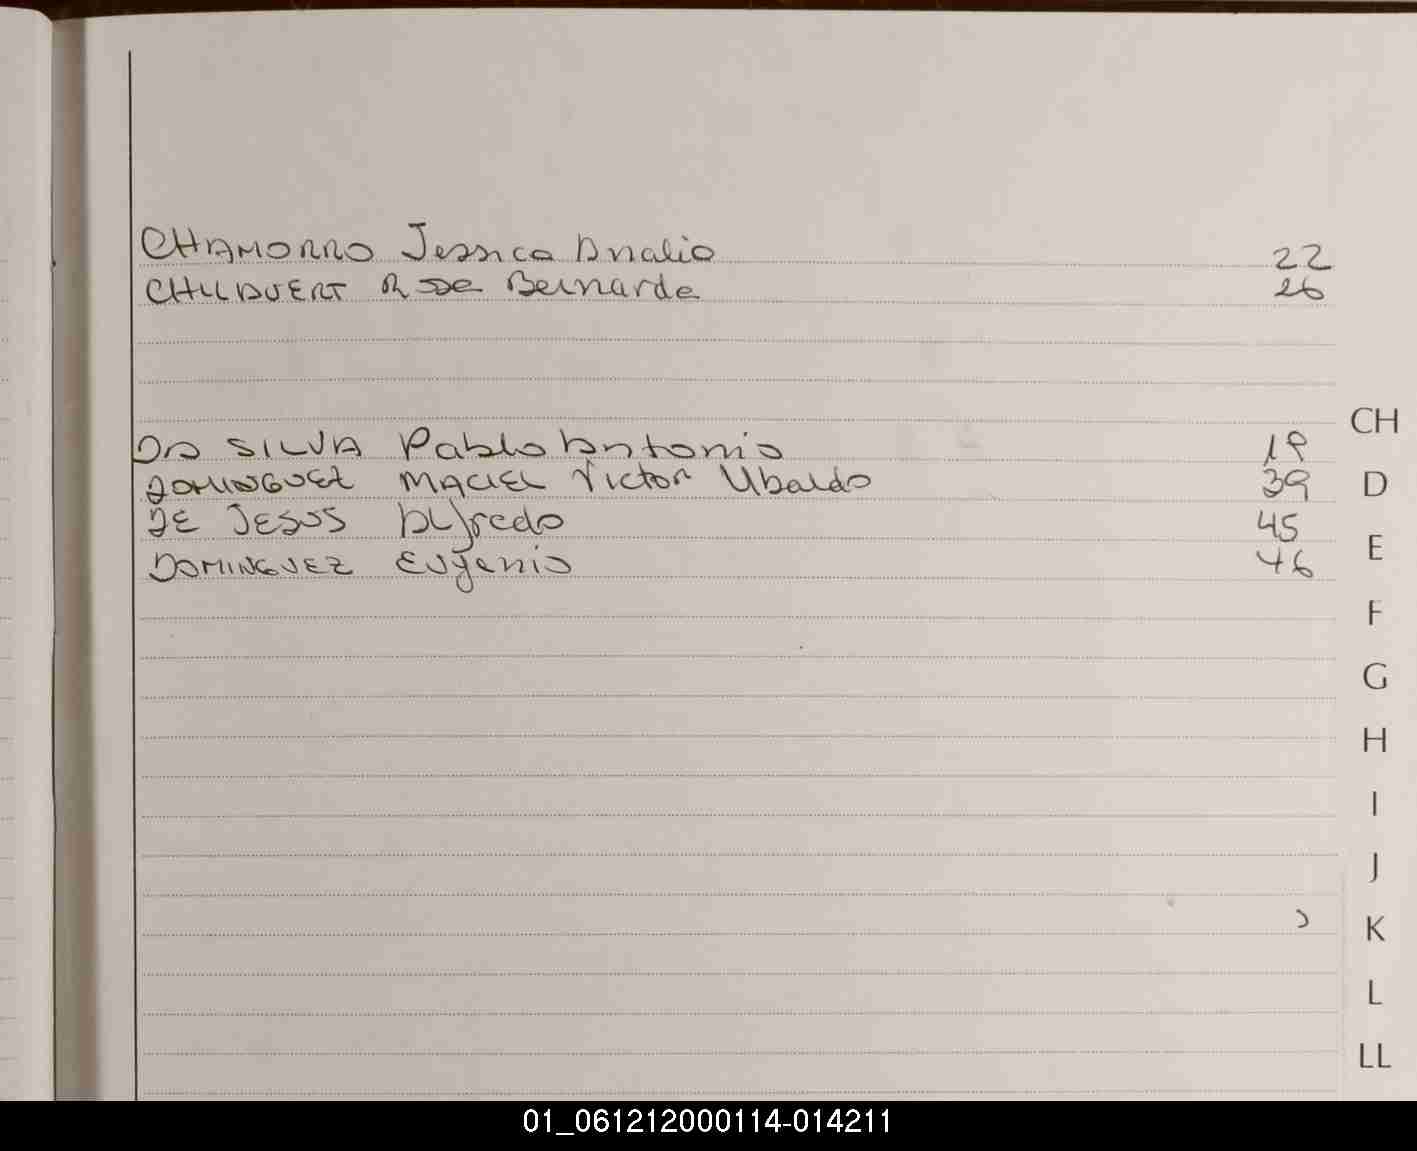 CHAMORRO Jessica Analia 22
CHILAVERT Rosa Bernarda 26
DA SILVA Pablo Antonio 19
DOMINGUEZ MACIEL Victor Ubaldo 39
DE JESUS Alfredo 45
DOMINGUEZ Eugenio 46
CH
D
E
F
G
H
I
J
K
L
LL
01_061212000114-014211